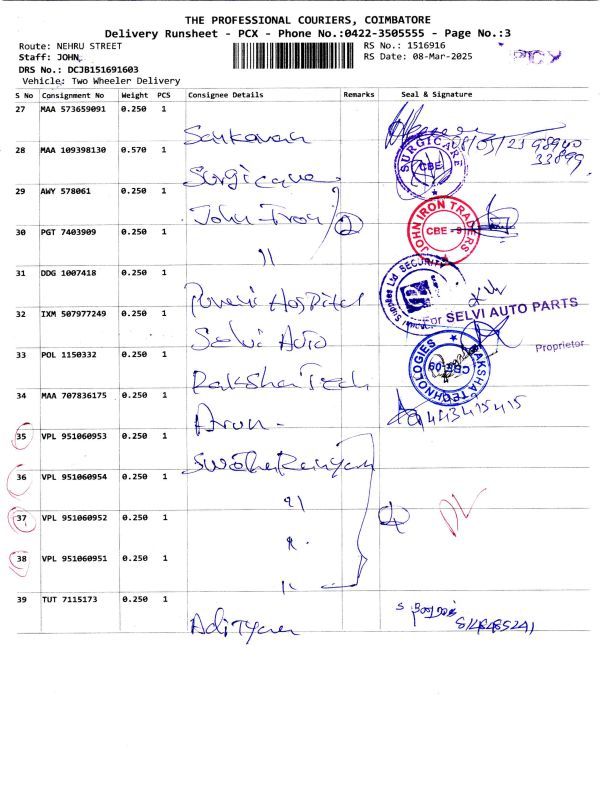 THE PROFESSIONAL COURIERS, COIMBATORE
Delivery Runsheet - PCX - Phone No.:0422-3505555 - Page No.:3
Route: NEHRU STREET
RS No.: 1516916
Staff: JOHN
RS Date: 08-Mar-2025
DRS No.: DCJB151691603
Vehicle: Two Wheeler Delivery
S No Consignment No Weight PCS Consignee Details Remarks Seal & Signature
27 MAA 573659091 0.250 1
28 MAA 109398130 0.570 1 Surgicare
SURGICARE CBE
29 AWY 578061 0.250 1 John Iron 2
JOHN IRON TRADERS CBE - 9
30 PGT 7403909 0.250 1 "
31 DDG 1007418 0.250 1 Hospital
32 IXM 507977249 0.250 1 Selvi Auto
For SELVI AUTO PARTS
Proprietor
33 POL 1150332 0.250 1 Raksha Tech
RAKSHA TECHNOLOGIES CBE-09
34 MAA 707836175 0.250 1 Arun
35 VPL 951060953 0.250 1
36 VPL 951060954 0.250 1 "
37 VPL 951060952 0.250 1
38 VPL 951060951 0.250 1 "
39 TUT 7115173 0.250 1